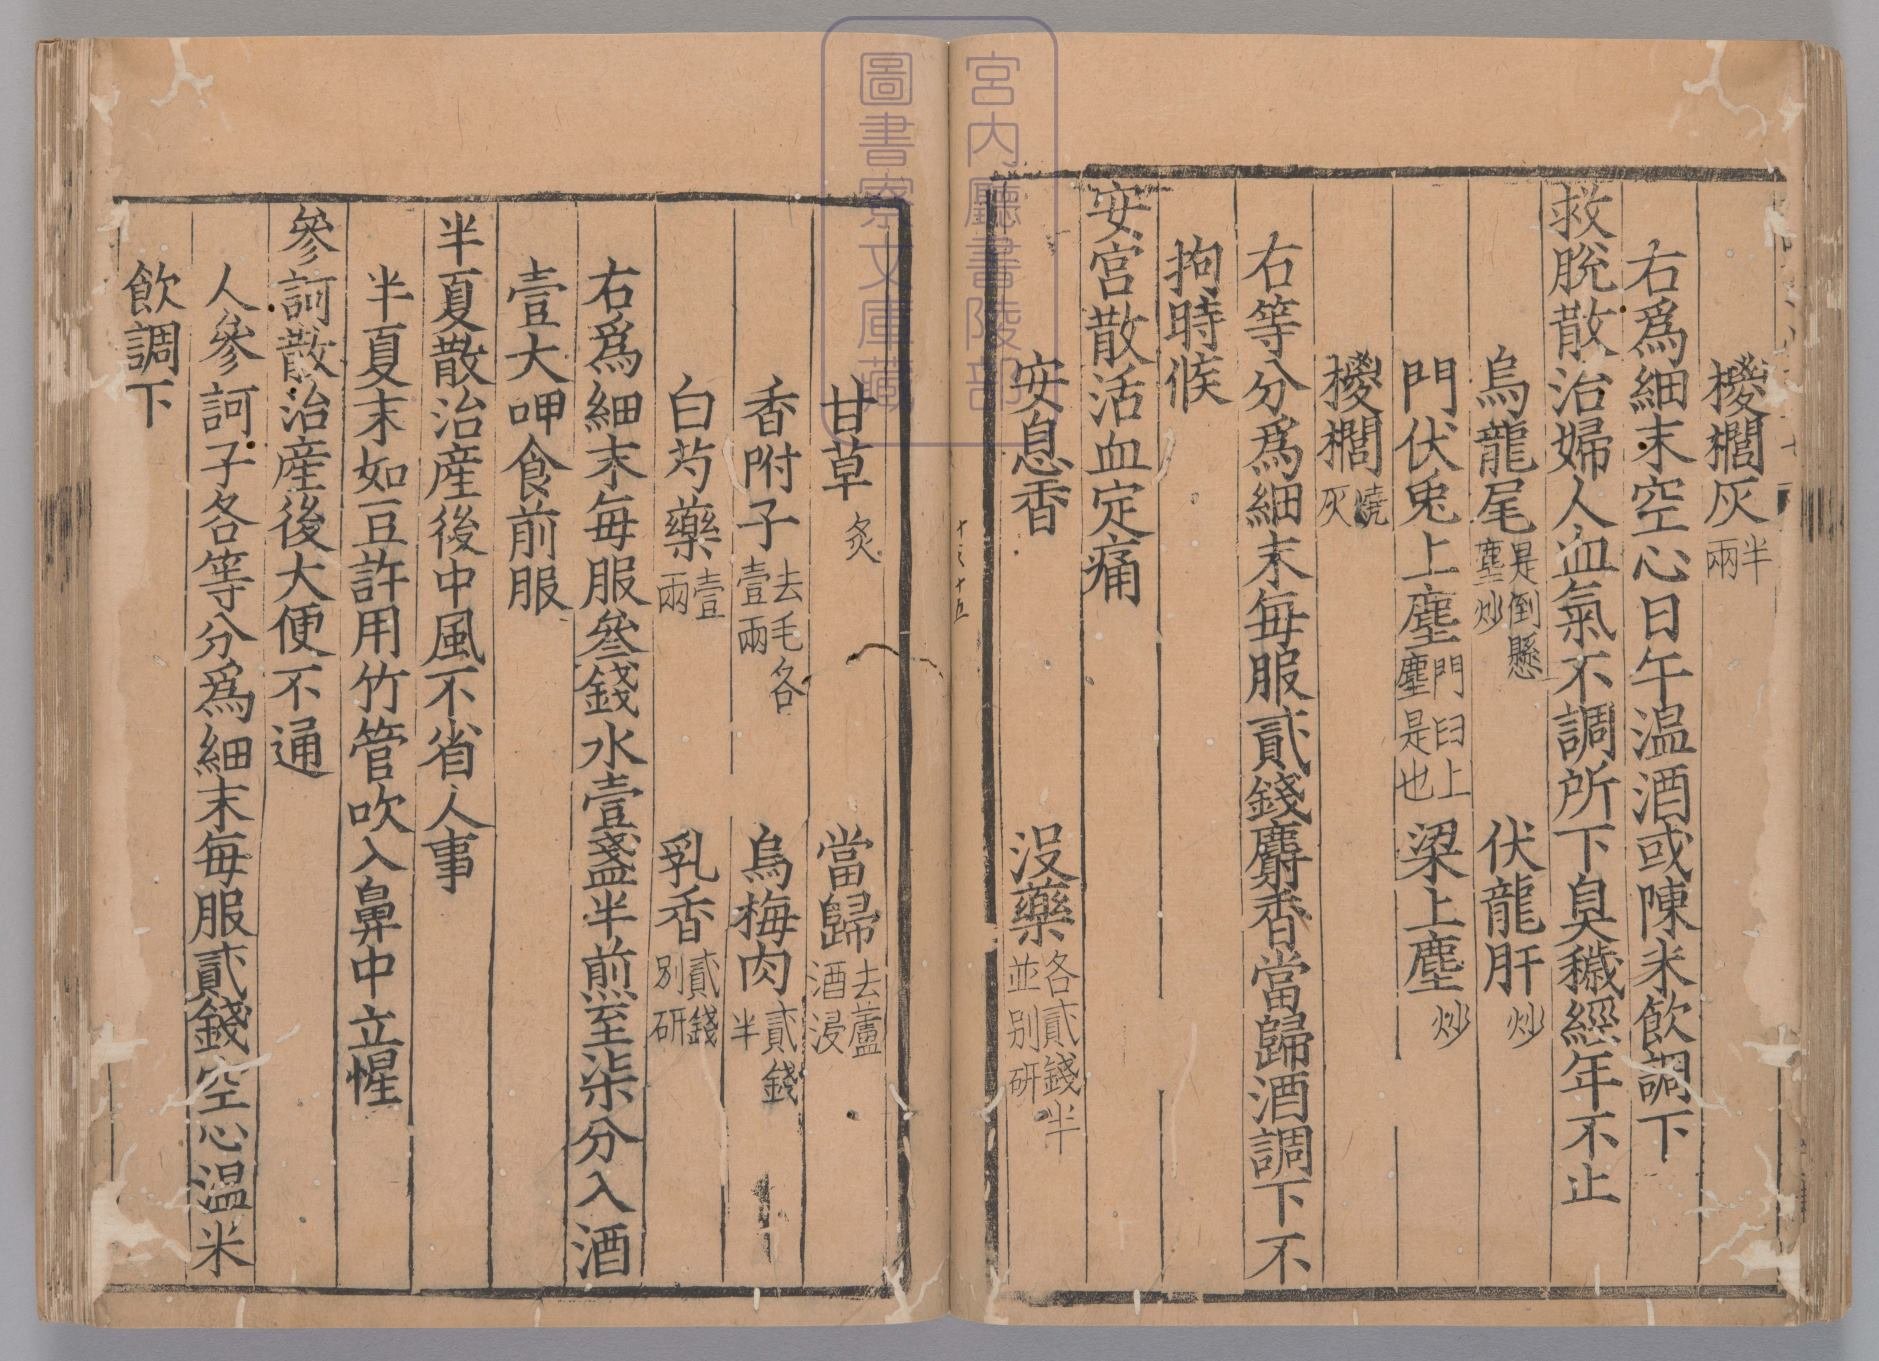 椶櫚灰半兩
右爲細末空心日午温酒或陳米飲調下
救脫散治婦人血氣不調所下臭穢經年不止
烏龍尾是倒懸塵炒 伏龍肝炒
門伏兎上塵門臼上塵是也 梁上塵炒
椶櫚燒灰
右等分爲細末每服貳錢麝香當歸酒調下不
拘時候
安宮散活血定痛
安息香 沒藥各貳錢半並別研
甘草炙 當歸去蘆酒浸
香附子去毛各壹兩 烏梅肉貳錢半
白芍藥壹兩 乳香貳錢別研
右爲細末每服叄錢水壹盞半煎至柒分入酒
壹大呷食前服
半夏散治產後中風不省人事
半夏末如豆許用竹管吹入鼻中立惺
參訶散治產後大便不通
人參訶子各等分爲細末每服貳錢空心温米
飲調下
宮内廳書陵部
圖書寮文庫藏